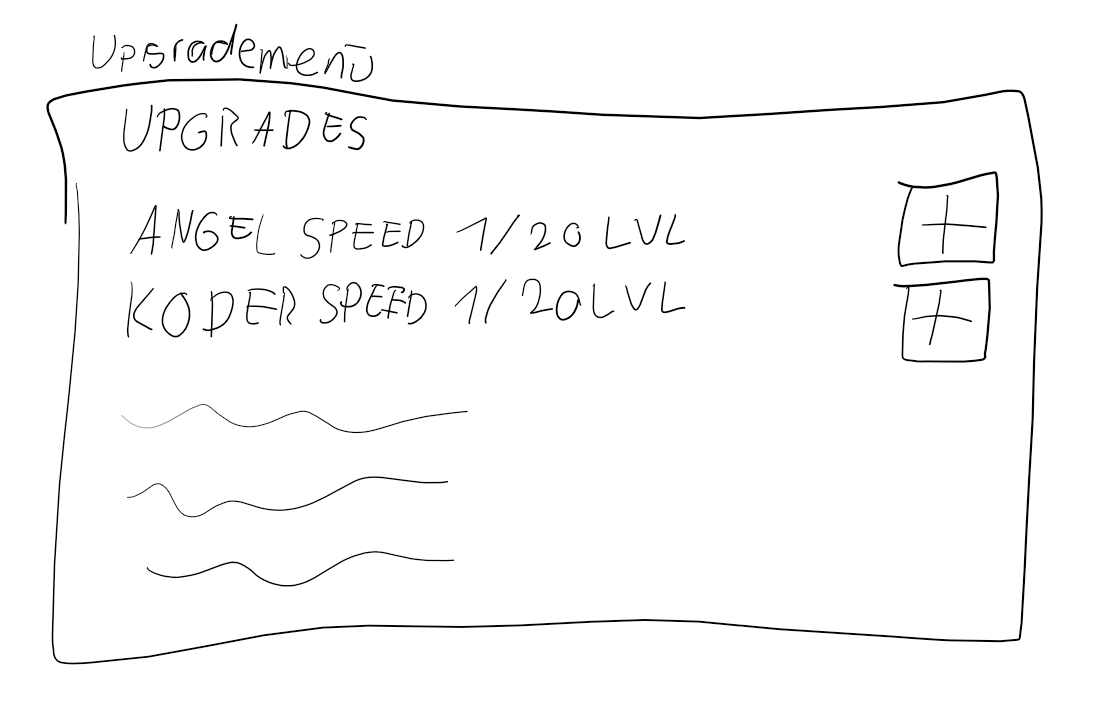 Upgrademenü
UPGRADES
ANGEL SPEED 1/20 LVL
+
KÖDER SPEED 1/20 LVL
+